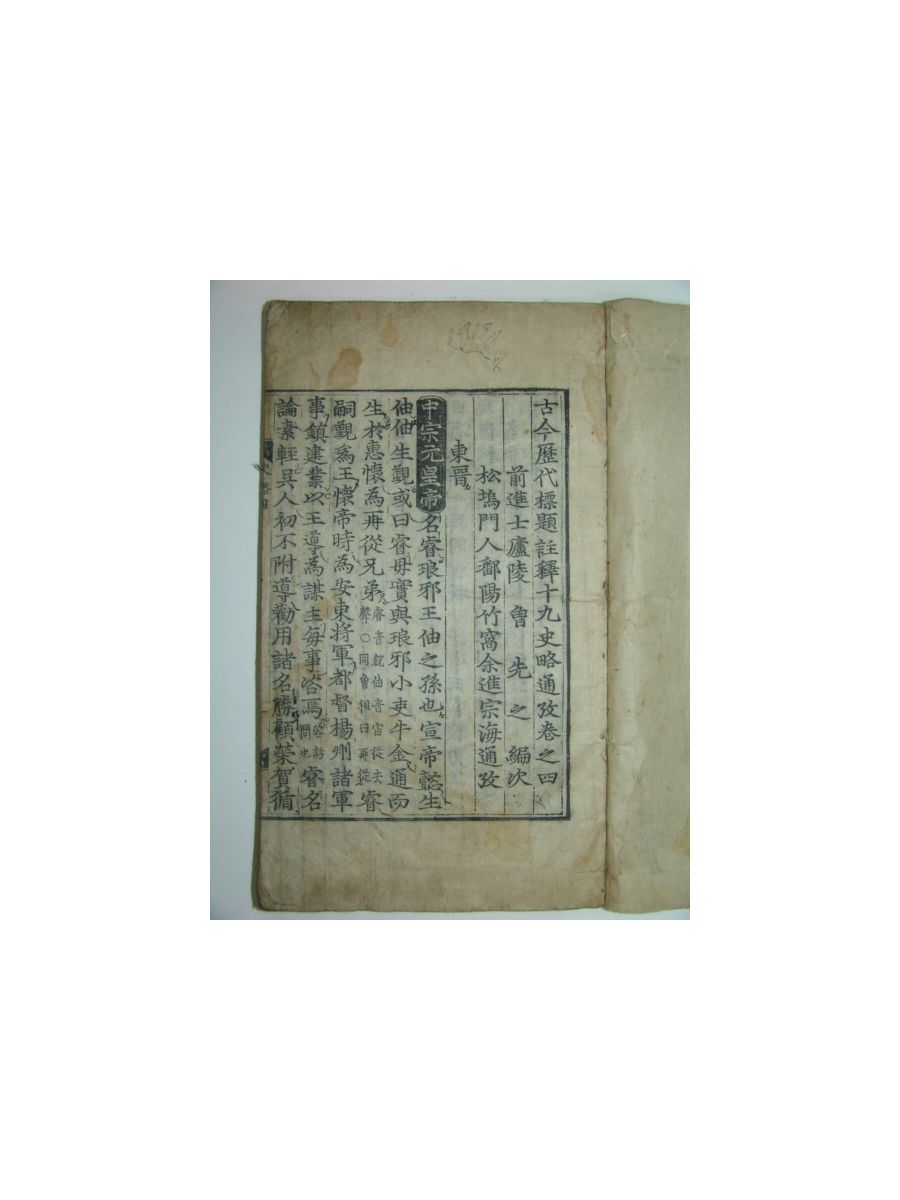 古今歷代標題註釋十九史略通攷卷之四
前進士廬陵 曾 先 之 編次
松塢門人鄱陽竹窩余進宗海通攷
東晉
中宗元皇帝名睿琅邪王伷之孫也宣帝懿生
伷伷生覲或曰睿母實與琅邪小吏牛金通而
生於惠懷為再從兄弟睿音銳伷音宙從去聲○同曾祖曰再從睿
嗣覲為王懷帝時為安東將軍都督揚州諸軍
事鎮建業以王導為謀主每事咨焉咨訪問也睿名
論素輕吳人初不附導勸用諸名勝顧榮賀循